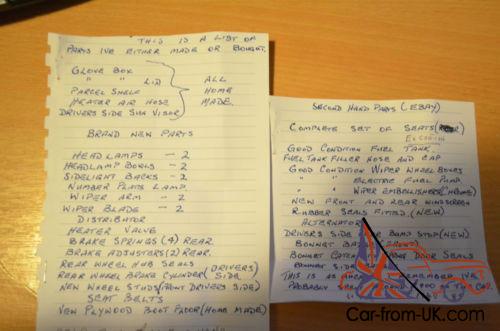 THIS IS A LIST OF
PARTS IVE EITHER MADE OR BOUGHT.
GLOVE BOX
" " LID
PARCEL SHELF
HEATER AIR HOSE
DRIVERS SIDE SUN VISOR
ALL
HOME
MADE
BRAND NEW PARTS
HEADLAMPS - 2
HEADLAMP BOWLS - 2
SIDELIGHT BACKS - 2
NUMBER PLATE LAMP
WIPER ARM - 2
WIPER BLADE - 2
DISTRIBUTOR
HEATER VALVE
BRAKE SPRINGS (4) REAR
BRAKE ADJUSTERS (2) REAR
REAR WHEEL HUB SEALS
REAR WHEEL BRAKE CYLINDER (DRIVERS SIDE)
NEW WHEEL STUDS (FRONT DRIVERS SIDE)
SEAT BELTS
NEW PLYWOOD BOOT FLOOR (HOME MADE)
SECOND HAND PARTS (EBAY)
COMPLETE SET OF SEATS
GOOD CONDITION FUEL TANK
FUEL TANK FILLER HOSE AND CAP
GOOD CONDITION WIPER WHEEL BOXES
" " ELECTRIC FUEL PUMP
" " WIPER EMBELISHERS (CHROME)
NEW FRONT AND REAR WINDSCREEN
RUBBER SEALS FITTED (NEW)
ALTERNATOR
DRIVERS SIDE BUMP STOP (NEW)
BONNET
BONNET CATCH DOOR SEALS
BONNET SIDE
THIS IS AS REMEMBER IVE
PROBABLY ON THE CAR
Car-from-UK.com